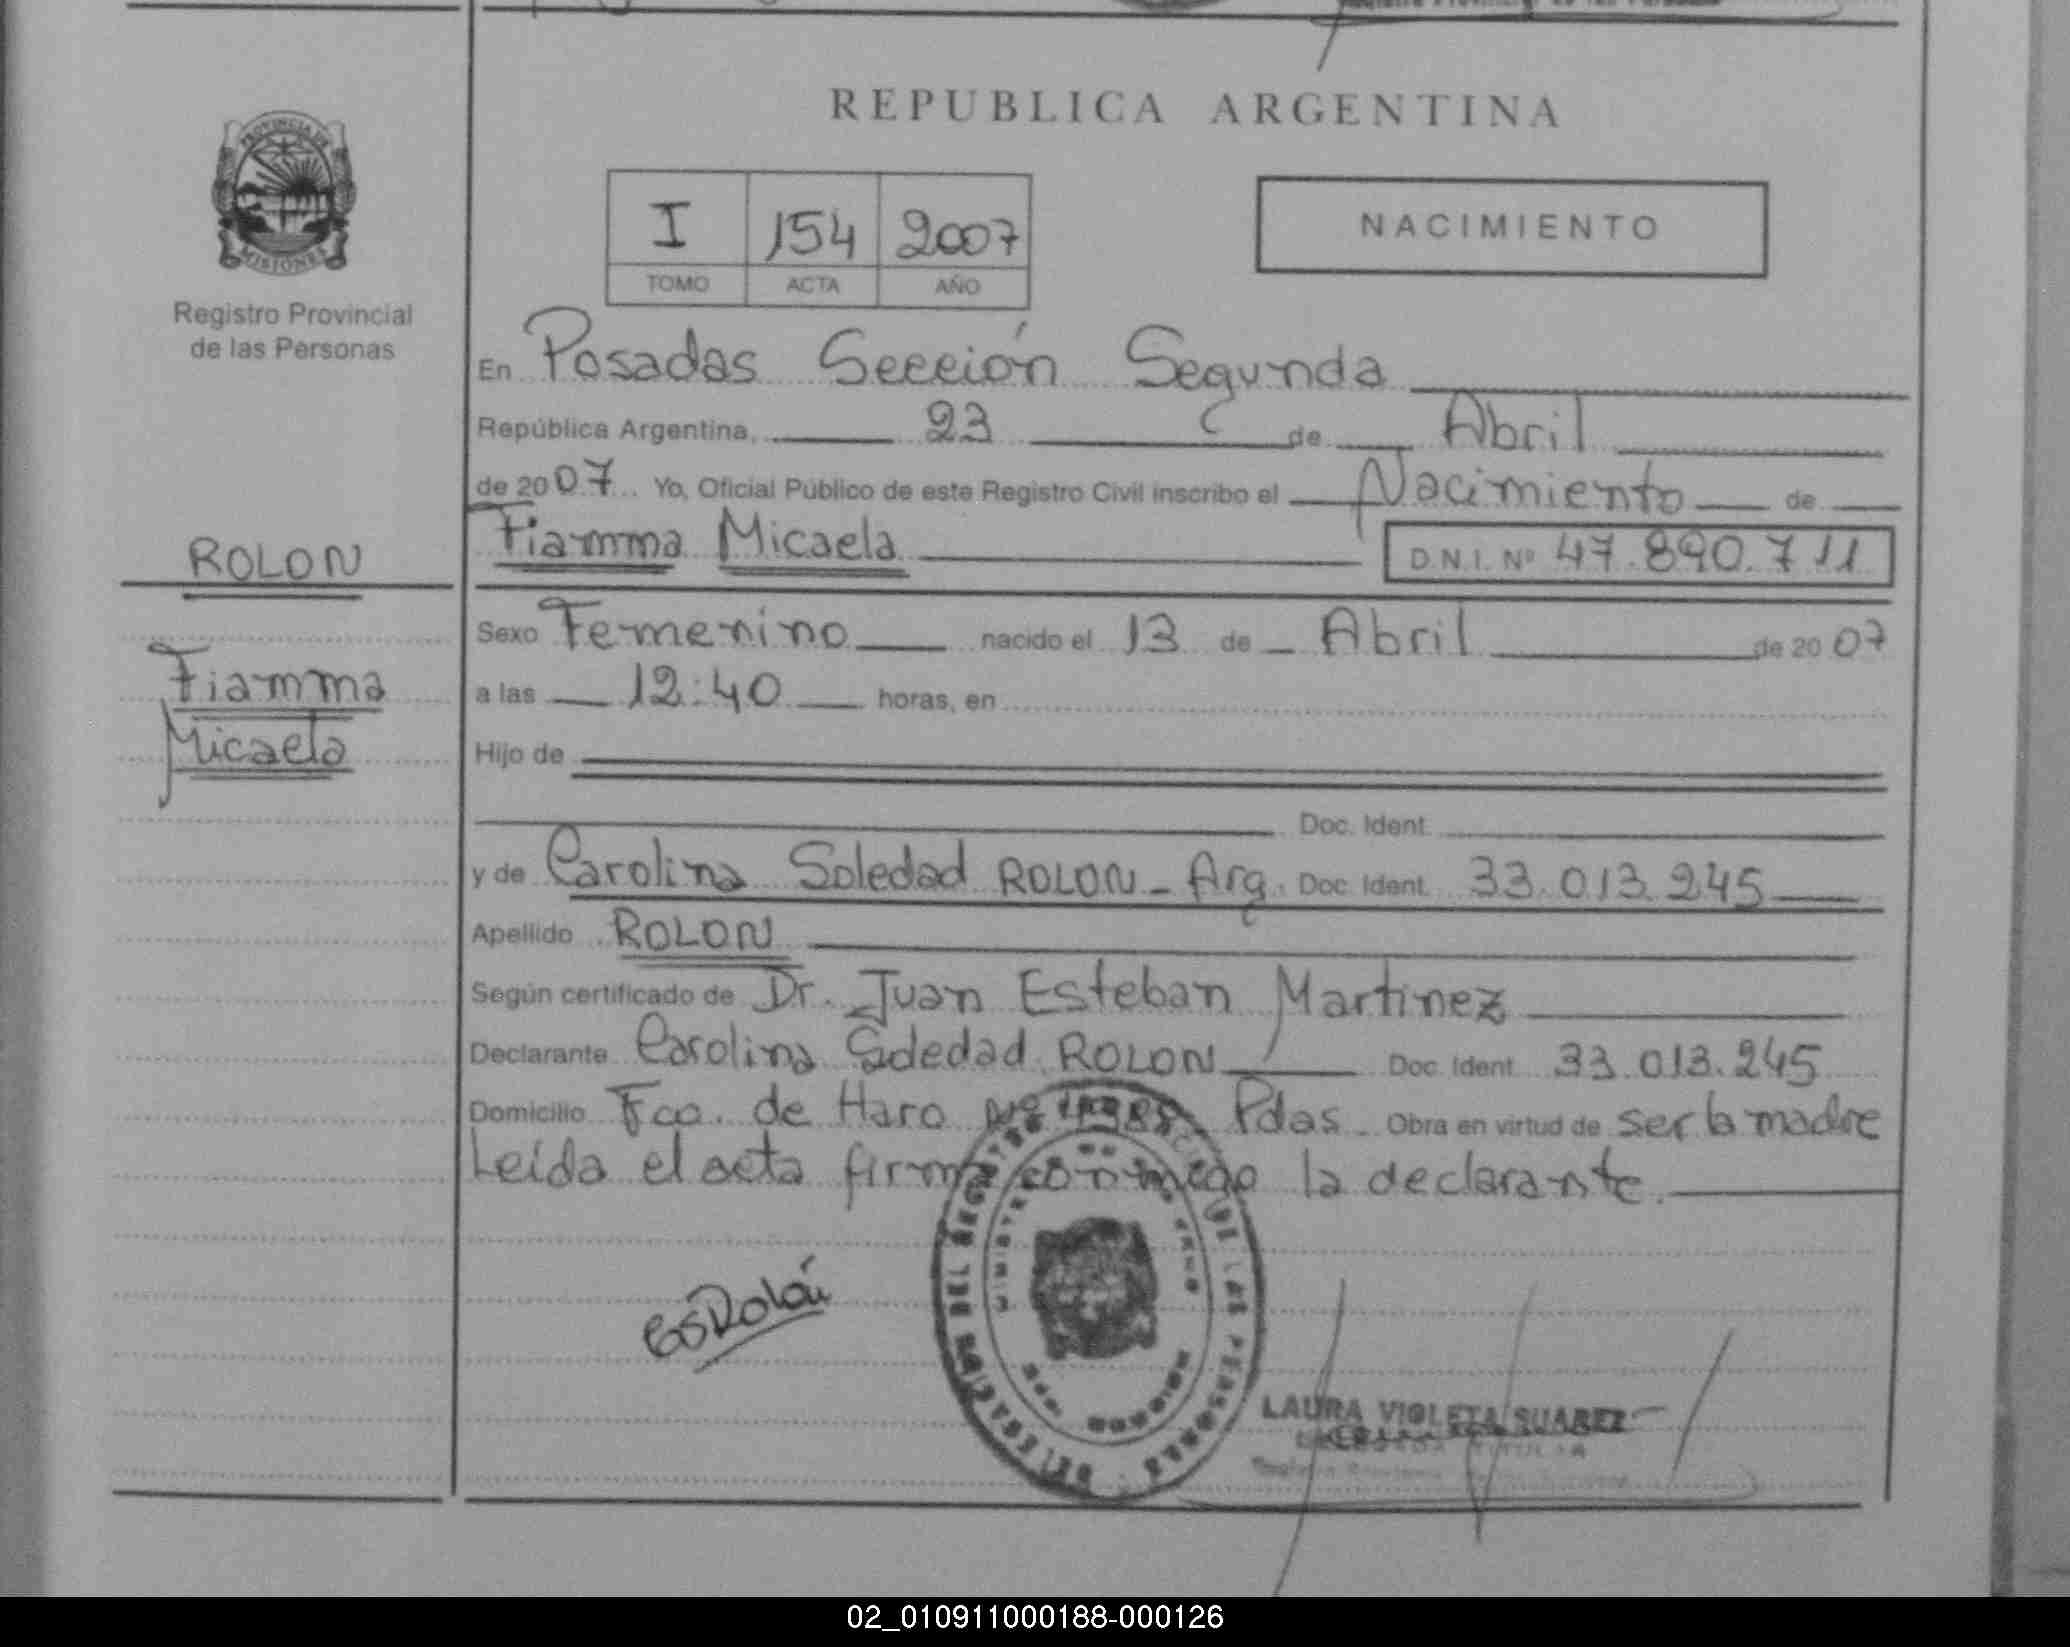 REPUBLICA ARGENTINA
PROVINCIA DE
MISIONES
Registro Provincial
de las Personas
I 154 2007
TOMO ACTA AÑO
NACIMIENTO
En Posadas Sección Segunda
República Argentina, 23 de Abril
de 2007 Yo, Oficial Público de este Registro Civil inscribo el Nacimiento de
Fiamma Micaela D.N.I. Nº 47.890.711
ROLON
Fiamma
Micaela
Sexo Femenino nacido el 13 de Abril de 2007
a las 12:40 horas, en
Hijo de
Doc. Ident.
y de Carolina Soledad ROLON - Arg. Doc. Ident. 33.013.245
Apellido ROLON
Según certificado de Dr. Juan Esteban Martinez
Declarante Carolina Soledad ROLON Doc. Ident. 33.013.245
Domicilio Fco. de Haro Nº Pdas. Obra en virtud de ser la madre
Leída el acta firma conmigo la declarante.
CSRolón
DEL REGISTRO DE LAS PERSONAS
LAURA VIOLETA SUAREZ
02_010911000188-000126